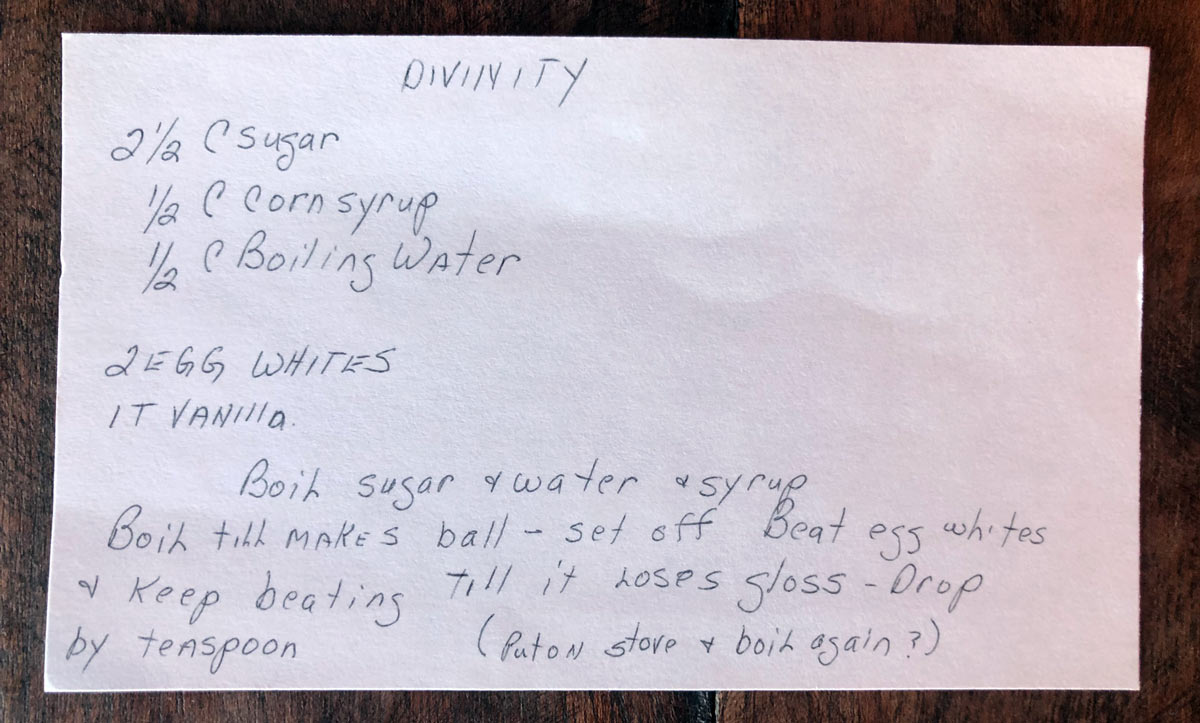 DIVINITY
2 1/2 C sugar
1/2 C Corn syrup
1/2 C Boiling Water
2 EGG WHITES
1 T VANIlla.
Boil sugar & water & syrup
Boil till MAKES ball - set off Beat egg whites
& Keep beating Till it Loses gloss - Drop
by teaspoon (Put on stove & boil again?)